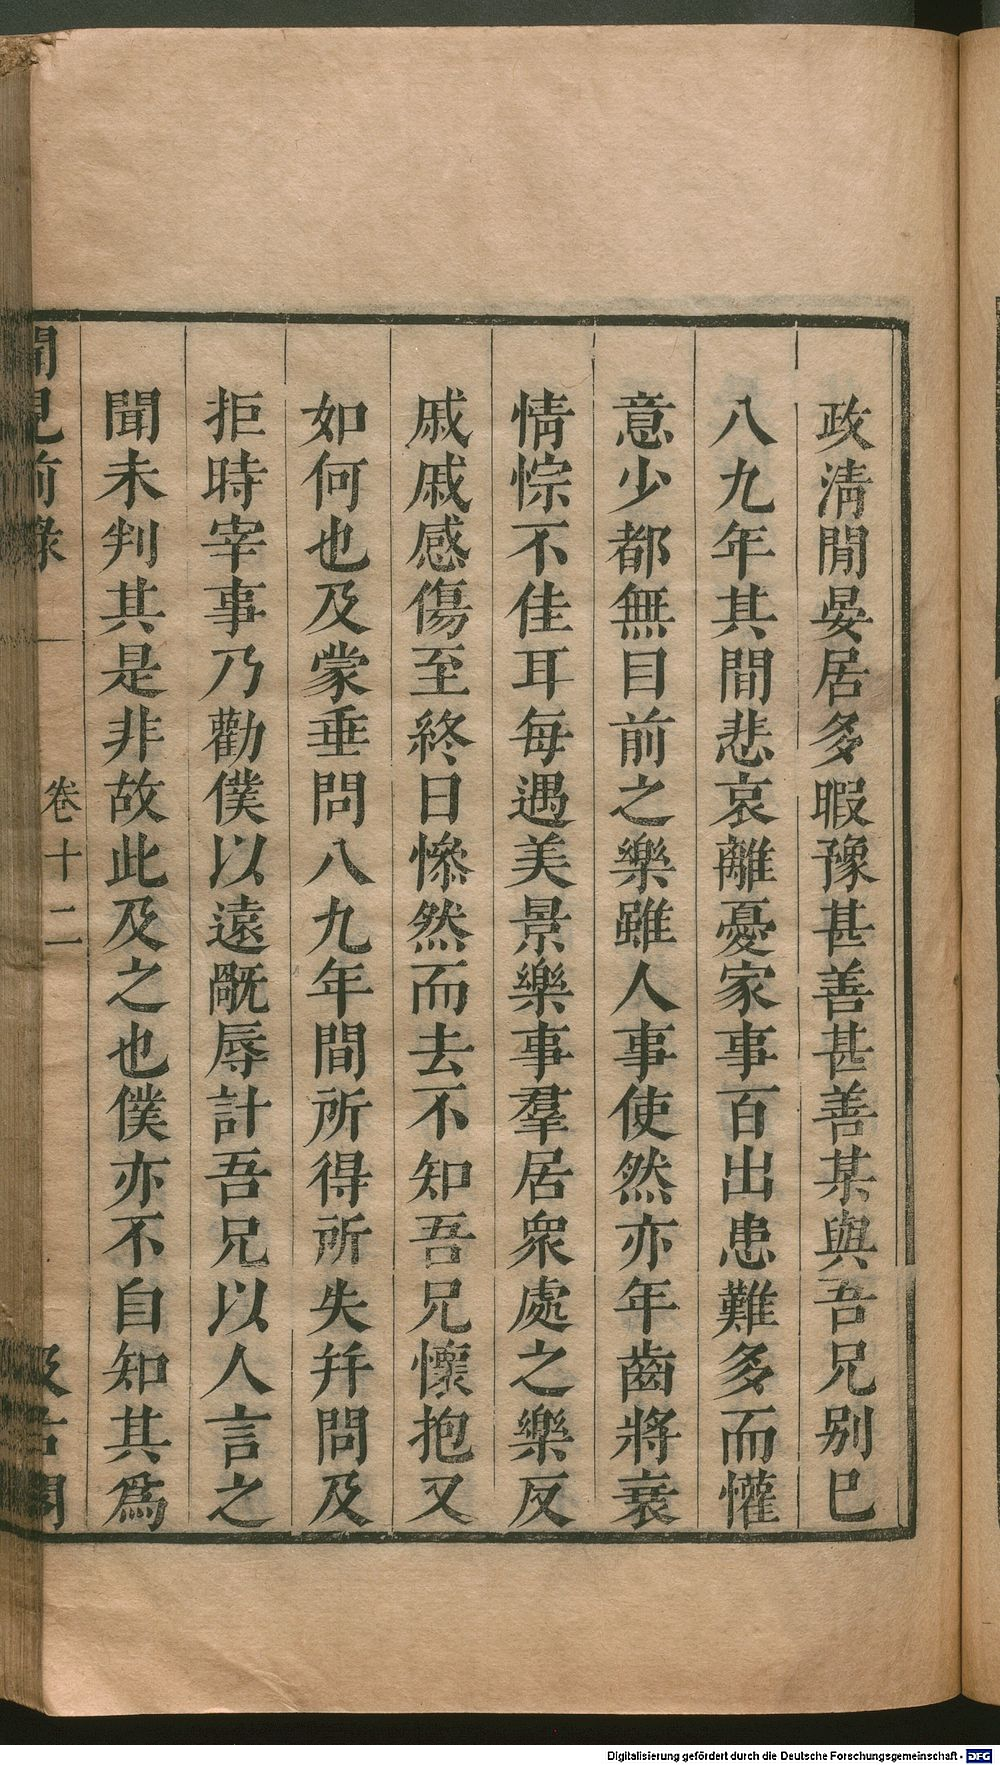 政淸閒晏居多暇豫甚善甚善某與吾兄别巳
八九年其間悲哀離憂家事百出患難多而懽
意少都無目前之樂雖人事使然亦年齒將衰
情悰不佳耳每遇美景樂事羣居衆處之樂反
戚戚感傷至終日慘然而去不知吾兄懷抱又
如何也及蒙垂問八九年間所得所失幷問及
拒時宰事乃勸僕以遠㢙辱計吾兄以人言之
聞未判其是非故此及之也僕亦不自知其爲
聞見前錄 卷十二 汲古閣
Digitalisierung gefördert durch die Deutsche Forschungsgemeinschaft - DFG